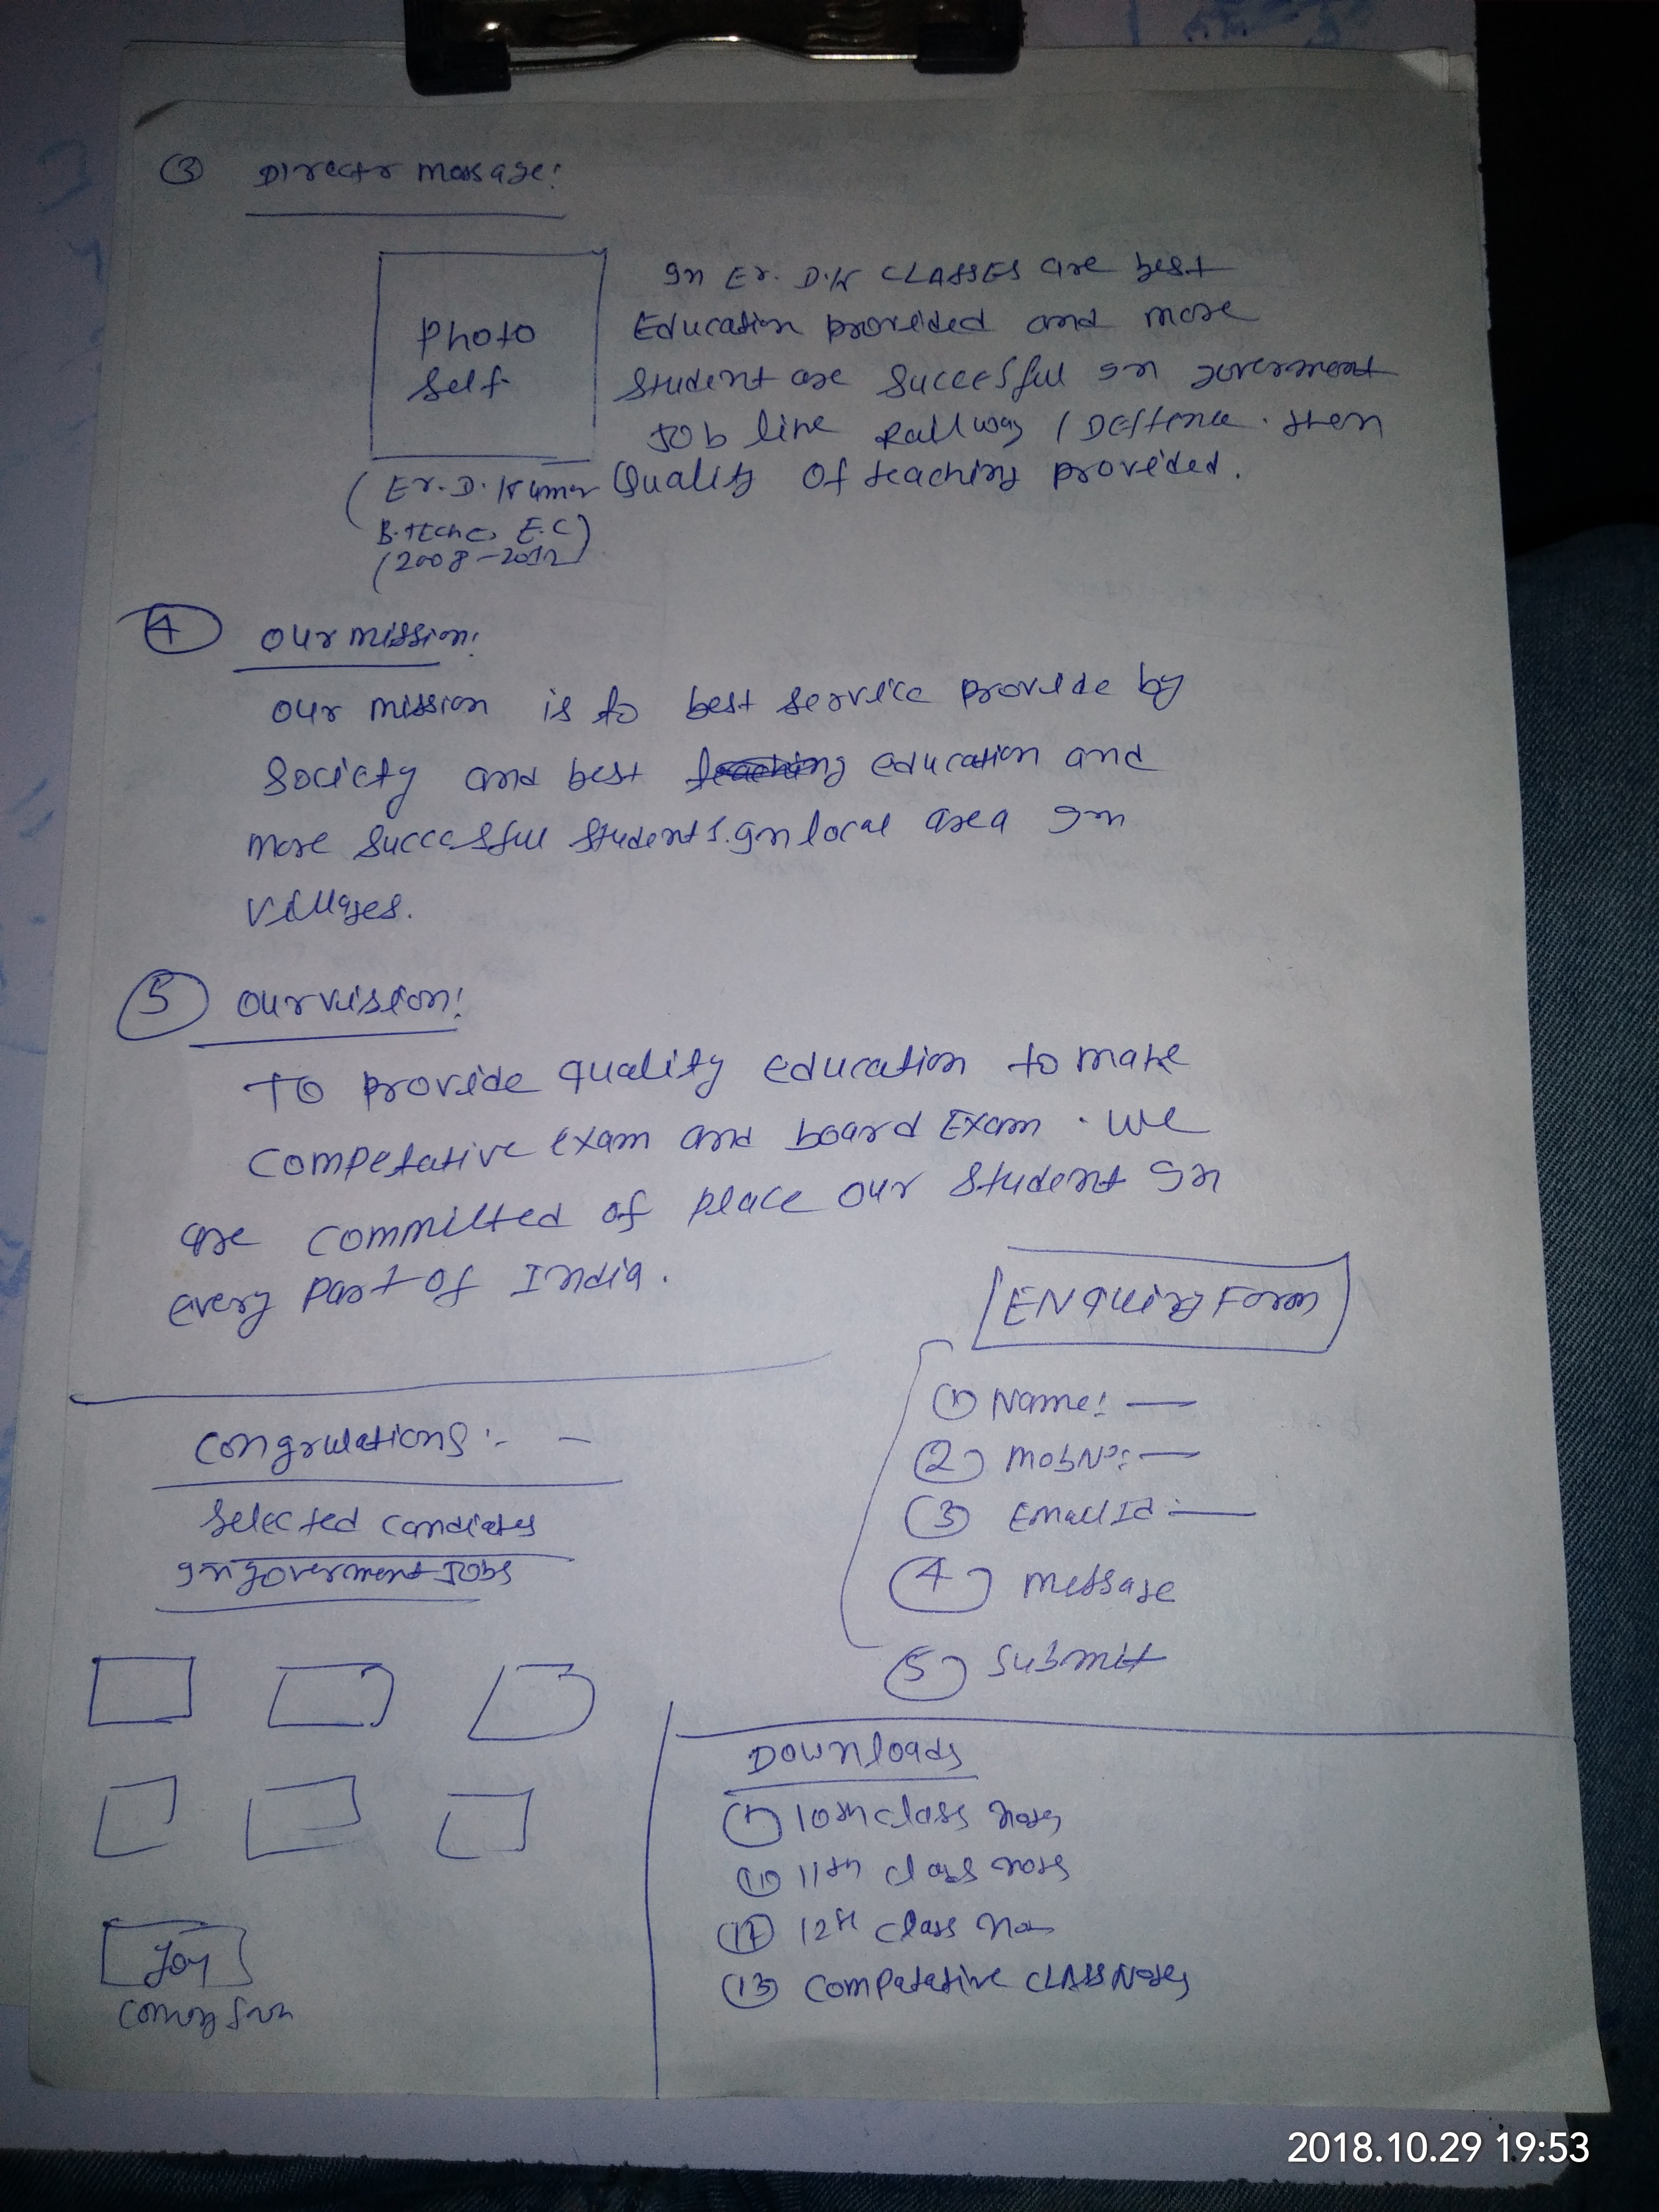 3 Directr massage:
Photo
Self
In Er. D.K CLASSES are best
Education provided and more
Student are Succesful In goverment
Job line Railway / Deffence. then
Quality Of teaching provided.
(Er. D. Kumar
B.TECH E.C)
(2008-2012)
4 Our mission:
Our mission is to best service provide by
Society and best education and
more Successful Students. In local area In
Villages.
5 Our vision:
To provide quality education to make
Competative exam and board Exam. We
are committed of place our Student In
every part of India.
ENquiry Form
1 Name: —
2 Mob No: —
3 Email Id: —
4 Message
5 Submit
Congrulations :- —
Selected candiates
In goverment Jobs
Joy
Coming Sun
Downloads
10th class notes
11th class nots
12th class
13 Compatative CLASS Notes
2018.10.29 19:53